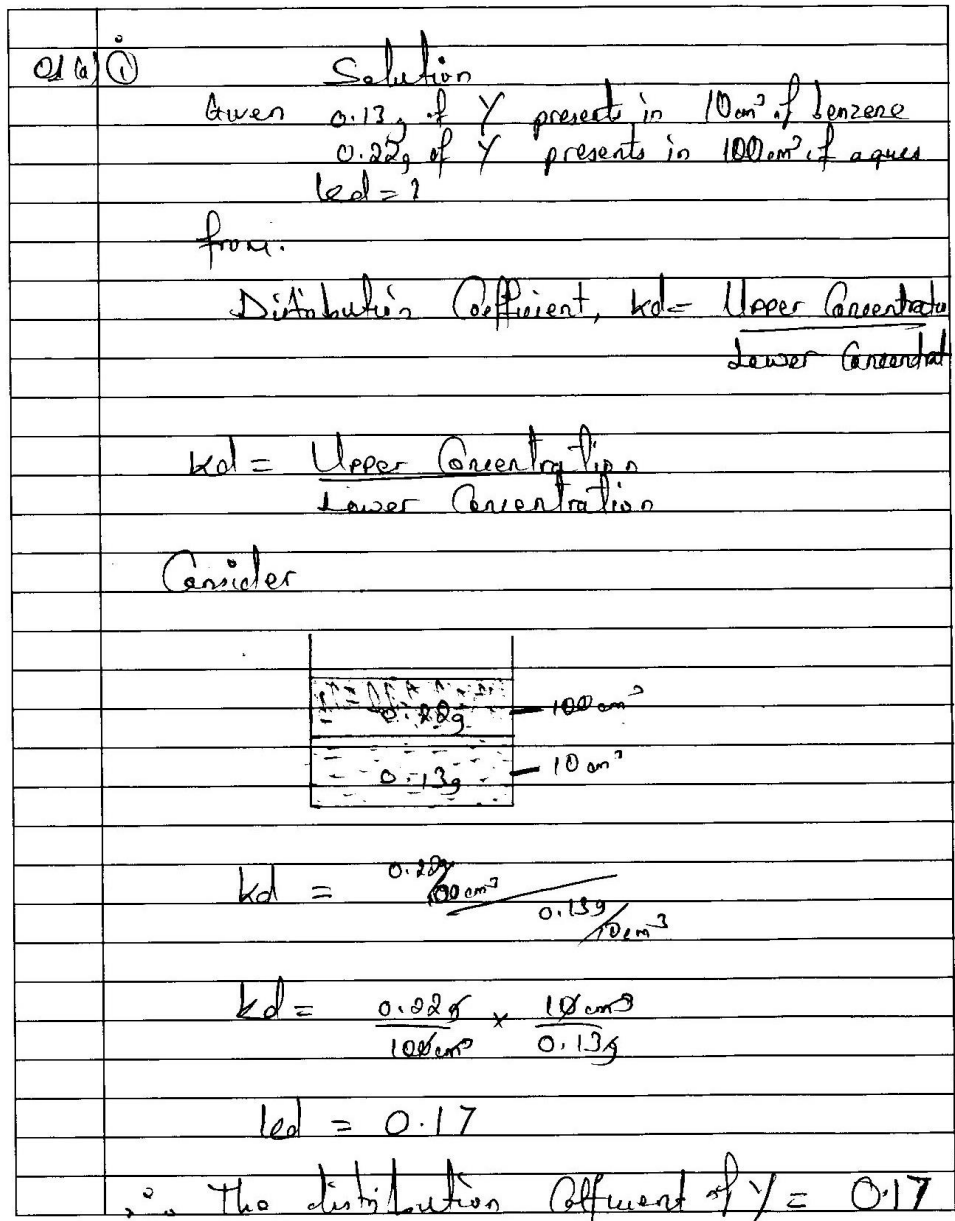 01 (a) (i) Solution
Given 0.13g of Y presents in 10cm³ of benzene
0.22g of Y presents in 100cm³ of aques
kd = ?
from.
Distribution Coefficient, kd = Upper Concentratio
Lower Concentrat
kd = Upper Concentration
Lower Concentration
Consider
0.22g 100 cm³
0.13g 10 cm³
kd = 0.22g/100cm³
0.13g/10cm³
kd = 0.22g × 10cm³
100cm³ 0.13g
kd = 0.17
∴ The distribution Coffucent of Y = 0.17